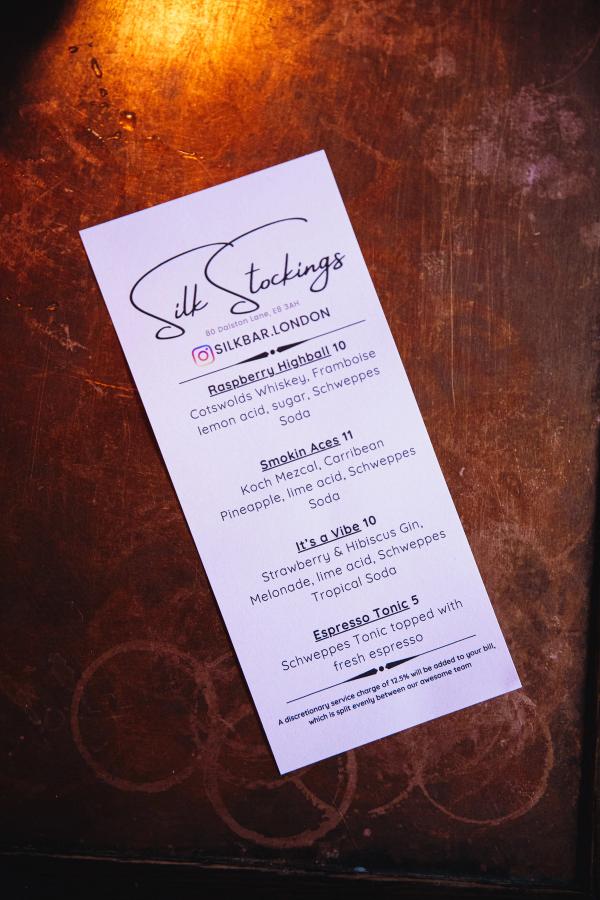 Silk Stockings
80 Dalston Lane, E8 3AH
SILKBAR.LONDON
Raspberry Highball 10
Cotswolds Whiskey, Framboise
lemon acid, sugar, Schweppes
Soda
Smokin Aces 11
Koch Mezcal, Carribean
Pineapple, lime acid, Schweppes
Soda
It's a Vibe 10
Strawberry & Hibiscus Gin,
Melonade, lime acid, Schweppes
Tropical Soda
Espresso Tonic 5
Schweppes Tonic topped with
fresh espresso
A discretionary service charge of 12.5% will be added to your bill,
which is split evenly between our awesome team